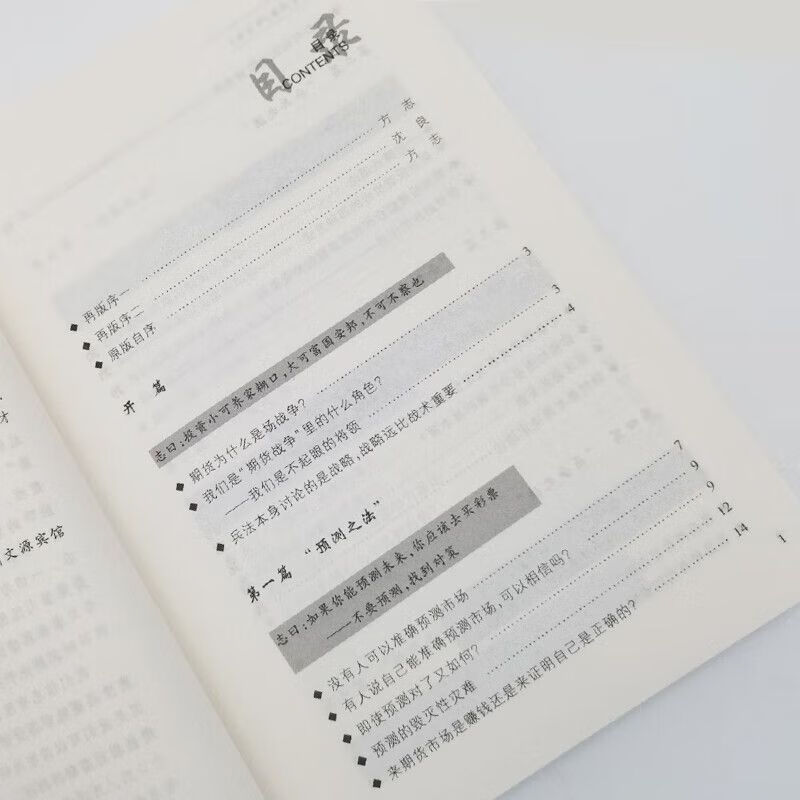 目录
目录
CONTENTS
◆ 再版序一 方 志
◆ 再版序二 沈 良
◆ 原版自序 方 志
开 篇
志曰:投资小可养家糊口,大可富国安邦,不可不察也
◆ 期货为什么是场战争? 3
◆ 我们是“期货战争”里的什么角色?
——我们是不起眼的将领 3
◆ 兵法本身讨论的是战略,战略远比战术重要 4
第一篇 “预测之法”
志曰:如果你能预测未来,你应该去买彩票
——不要预测,找到对策
◆ 没有人可以准确预测市场 7
◆ 有人说自己能准确预测市场,可以相信吗? 9
◆ 即使预测对了又如何? 9
◆ 预测的毁灭性灾难 12
◆ 来期货市场是赚钱还是来证明自己是正确的? 14
1
才
文源宾馆